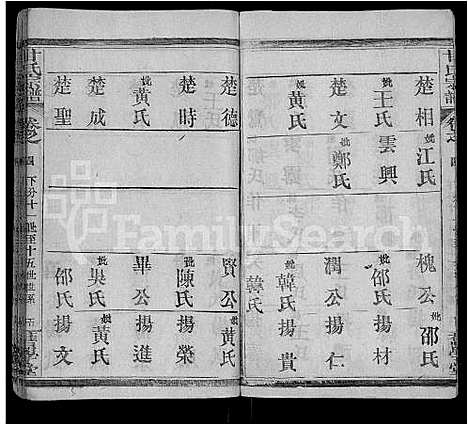 甘氏宗譜 卷之
楚相 妣江氏 槐公 妣邵氏
妣王氏 雲興 妣邵氏 揚材
妣鄭氏 潤公 揚仁
妣黃氏 妣韓氏 揚貴
楚德 賢公 妣黃氏
楚時 妣陳氏 揚榮
妣黃氏 畢公 揚進
楚成 妣吳氏 妣黃氏
楚聖 邵氏 揚文
甘氏宗譜 卷之四 下分十一世至十五世世系
FamilySearch